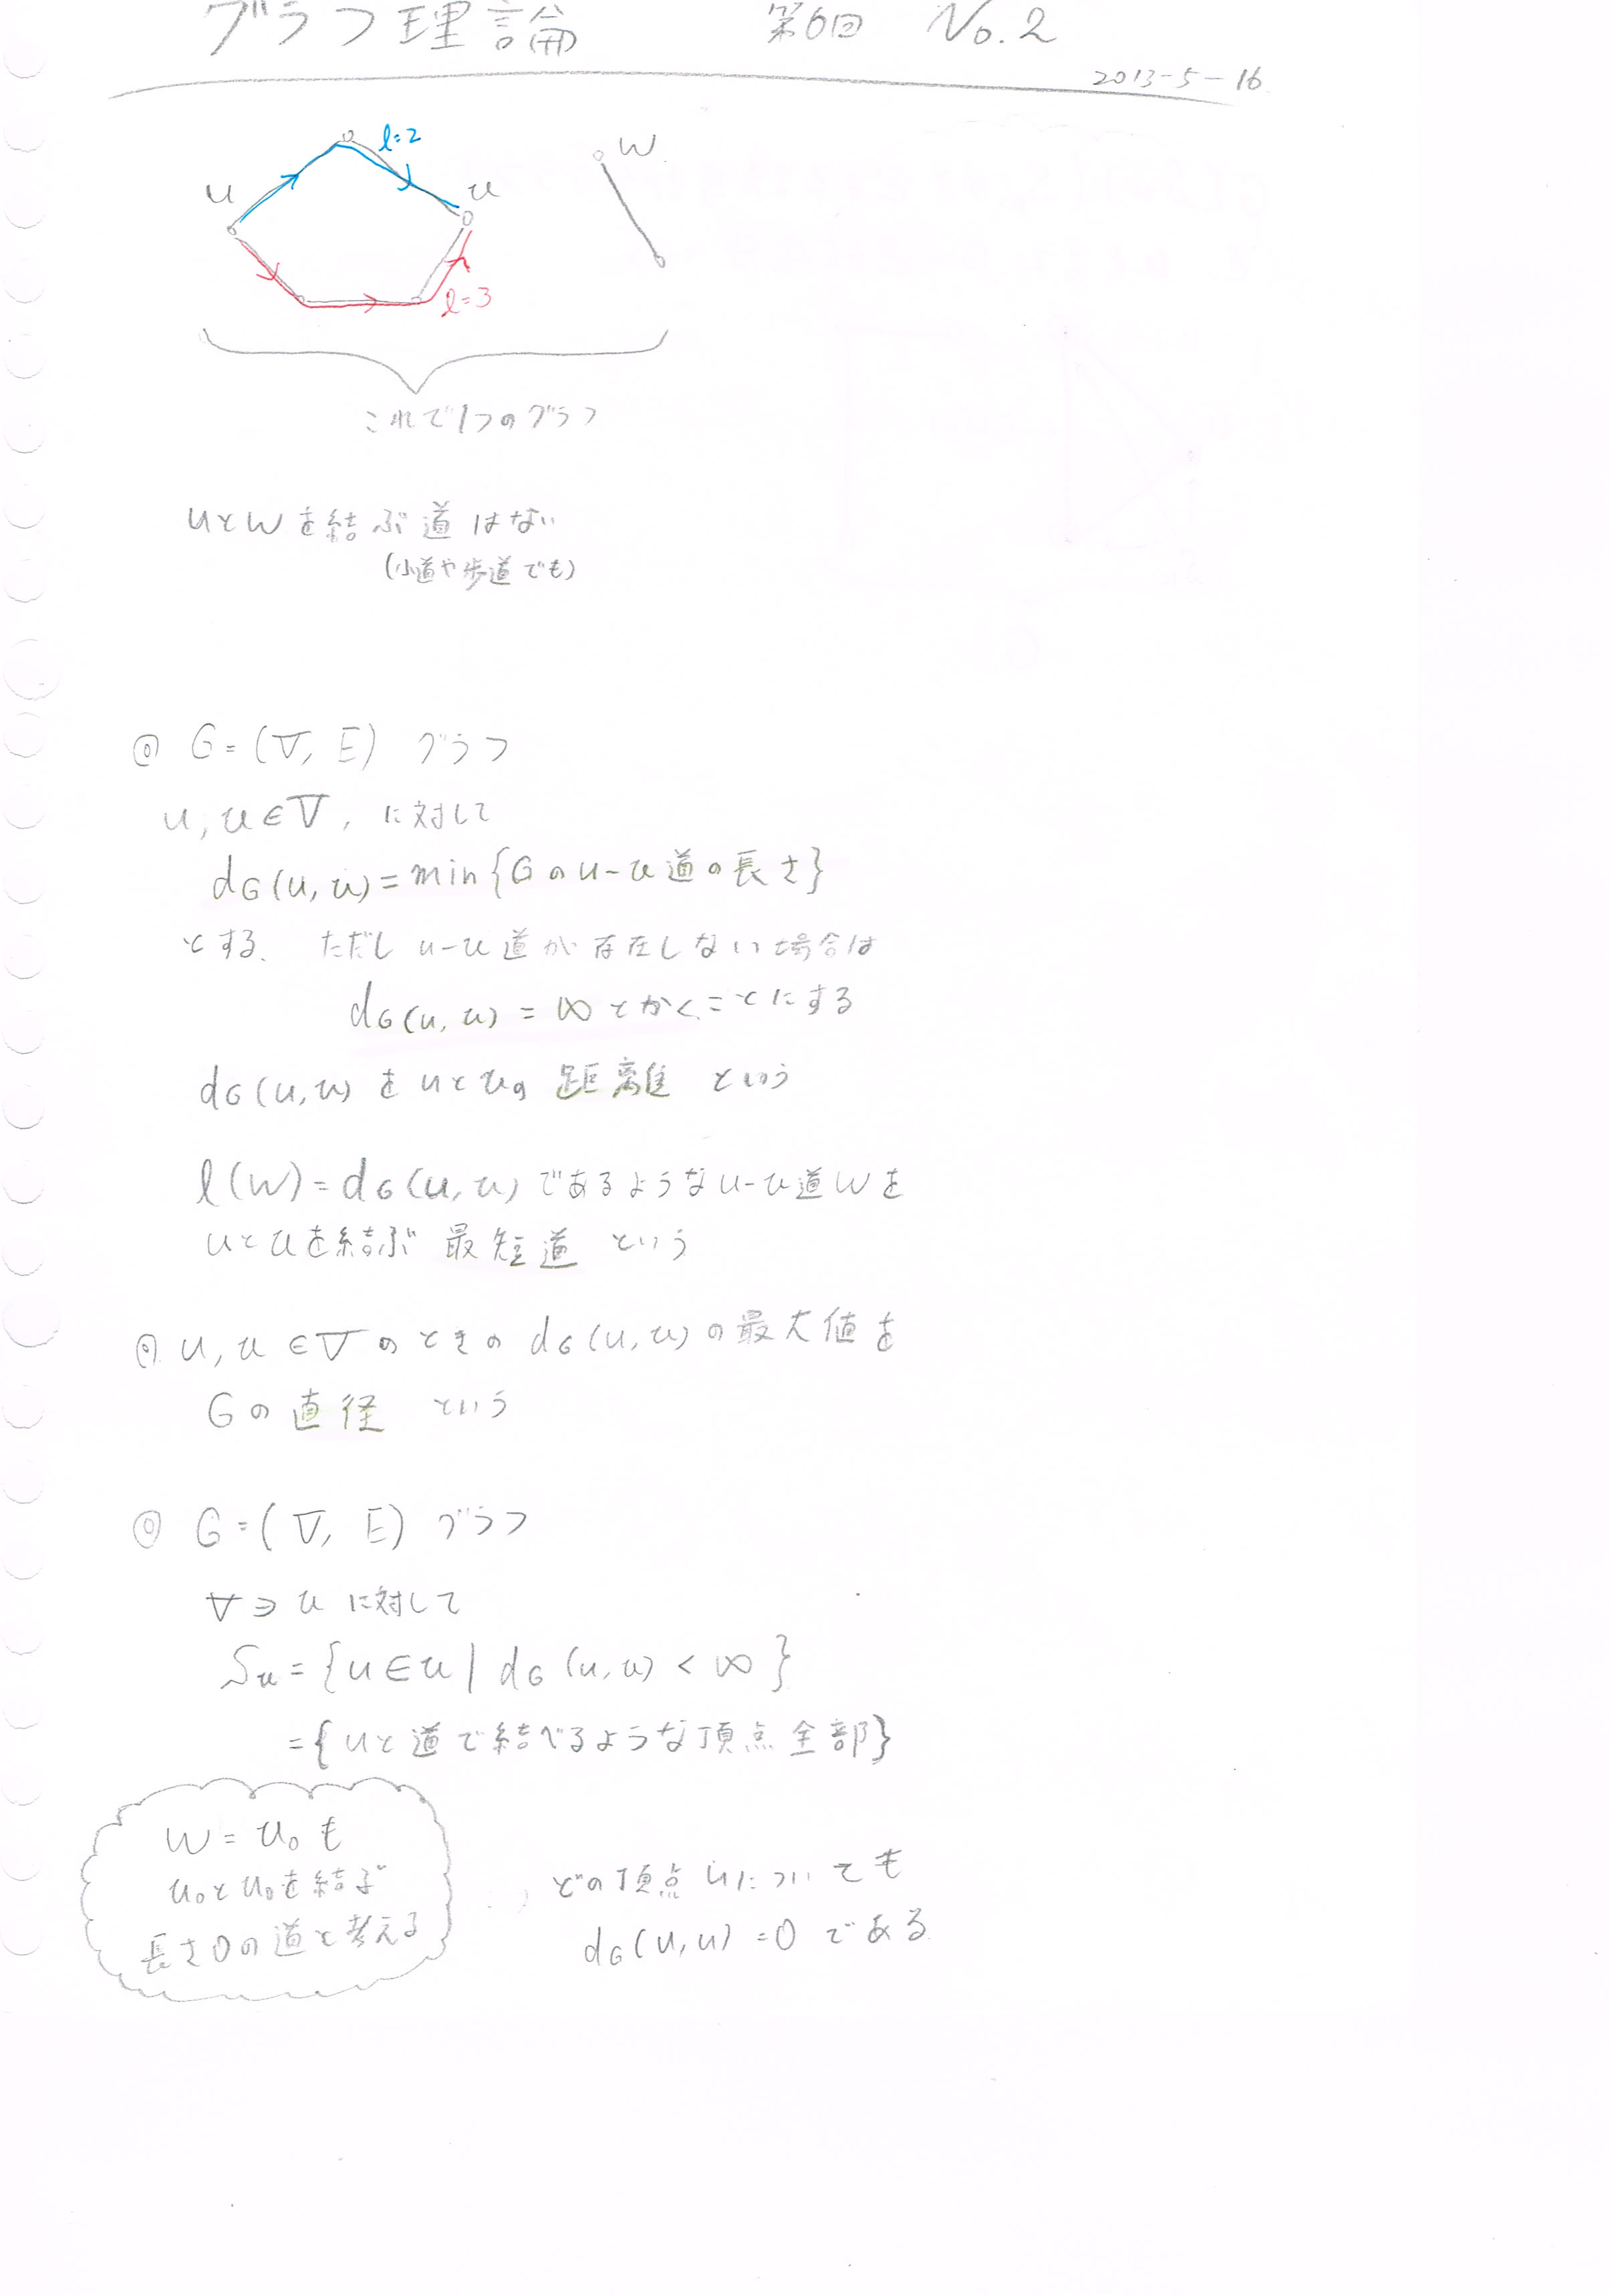 グラフ理論 第6回 No.2
2013-5-16
l=2
u
v
w
l=3
これで1つのグラフ
uとwを結ぶ道はない
(小道や歩道でも)
◎ G=(V, E) グラフ
u, v∈V, に対して
dG(u, v)=min{Gのu-v道の長さ}
とする. ただしu-v道が存在しない場合は
dG(u, v) = ∞ とかくことにする
dG(u, v) をuとvの 距離 という
l(W)=dG(u, v)であるようなu-v道Wを
uとvを結ぶ 最短道 という
◎ u, v∈VのときのdG(u, v)の最大値を
Gの 直径 という
◎ G=(V, E) グラフ
V∋u に対して
Su={u∈v | dG(u, v) < ∞}
={uと道で結べるような頂点全部}
W=v0も
v0とv0を結ぶ
長さ0の道と考える
どの頂点uについても
dG(u, u)=0である